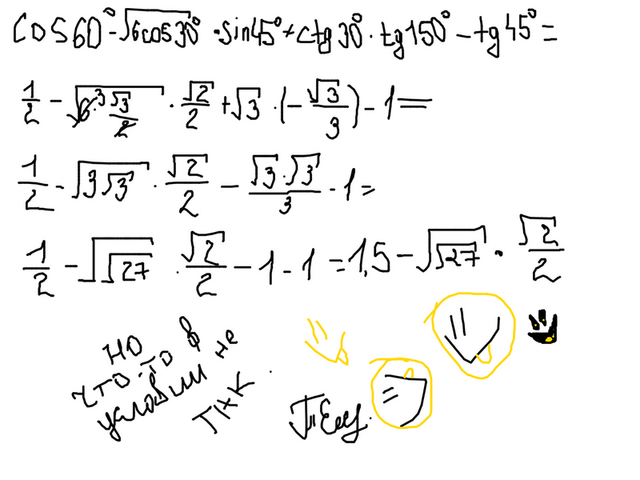 cos60° - √6cos30° · sin45° + ctg30° · tg150° - tg45° =
1/2 - √(6·³ √3/2) · √2/2 + √3 · (-√3/3) - 1 =
1/2 - √(3√3) · √2/2 - √3·√3/3 - 1 =
1/2 - √√27 · √2/2 - 1 - 1 = 1,5 - √√27 · √2/2
но
что-то в
условии не
так